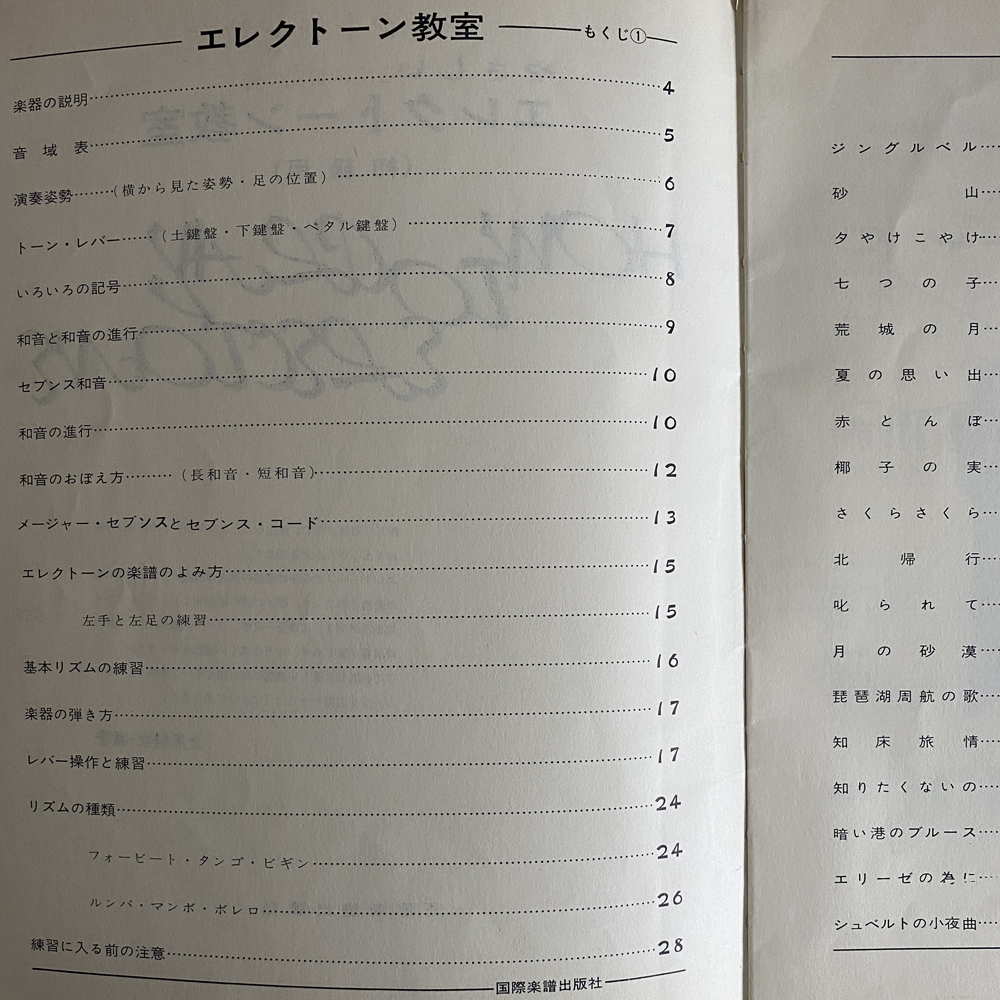 エレクトーン教室 もくじ①
楽器の説明 4
音域表 5
演奏姿勢(横から見た姿勢・足の位置) 6
トーン・レバー(土鍵盤・下鍵盤・ペタル鍵盤) 7
いろいろの記号 8
和音と和音の進行 9
セブンス和音 10
和音の進行 10
和音のおぼえ方(長和音・短和音) 12
メージャー・セブンスとセブンス・コード 13
エレクトーンの楽譜のよみ方 15
左手と左足の練習 15
基本リズムの練習 16
楽器の弾き方 17
レバー操作と練習 17
リズムの種類 24
フォービート・タンゴ・ビギン 24
ルンバ・マンボ・ボレロ 26
練習に入る前の注意 28
国際楽譜出版社
ジングルベル
砂山
夕やけこやけ
七つの子
荒城の月
夏の思い出
赤とんぼ
椰子の実
さくらさくら
北帰行
叱られて
月の砂漠
琵琶湖周航の歌
知床旅情
知りたくないの
暗い港のブルース
エリーゼの為に
シュベルトの小夜曲